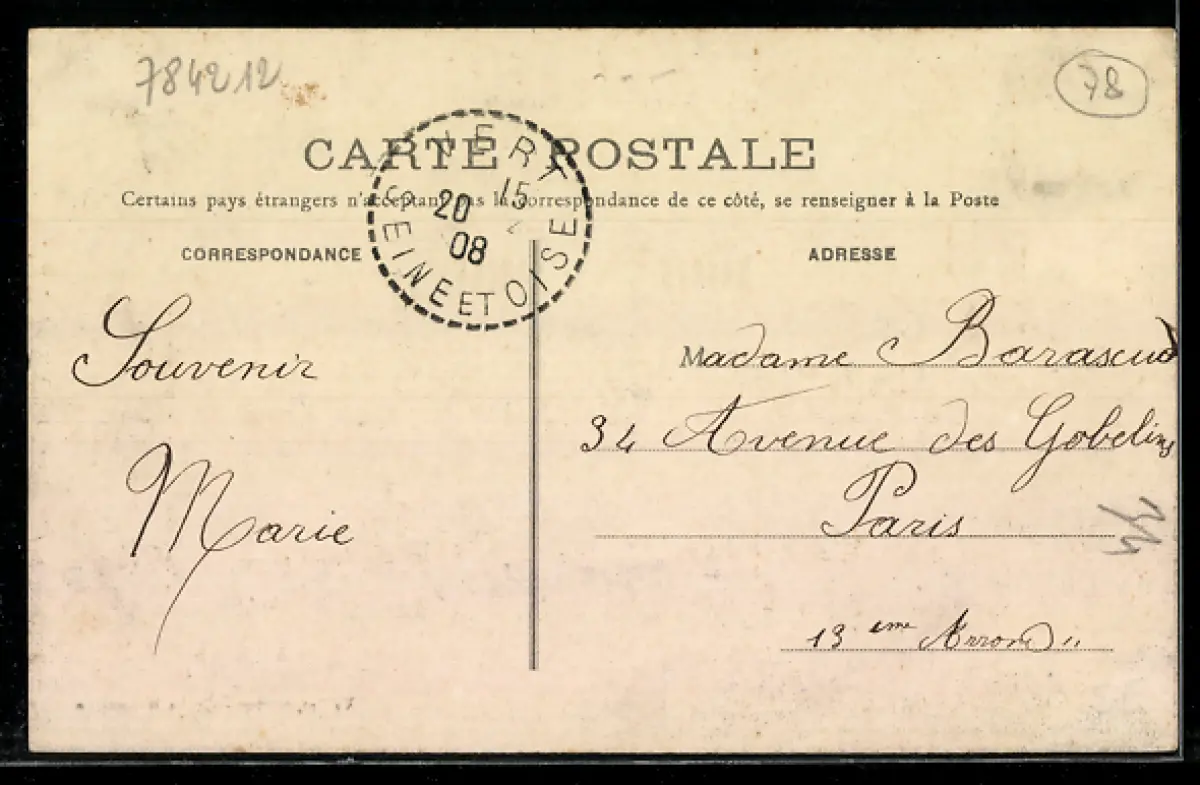 784212
78
CARTE POSTALE
Certains pays étrangers n'acceptant pas la correspondance de ce côté, se renseigner à la Poste
VERT
15
20
08
SEINE ET OISE
CORRESPONDANCE
ADRESSE
Souvenir
Marie
Madame Barascud
34 Avenue des Gobelins
Paris
13 eme Arrond"